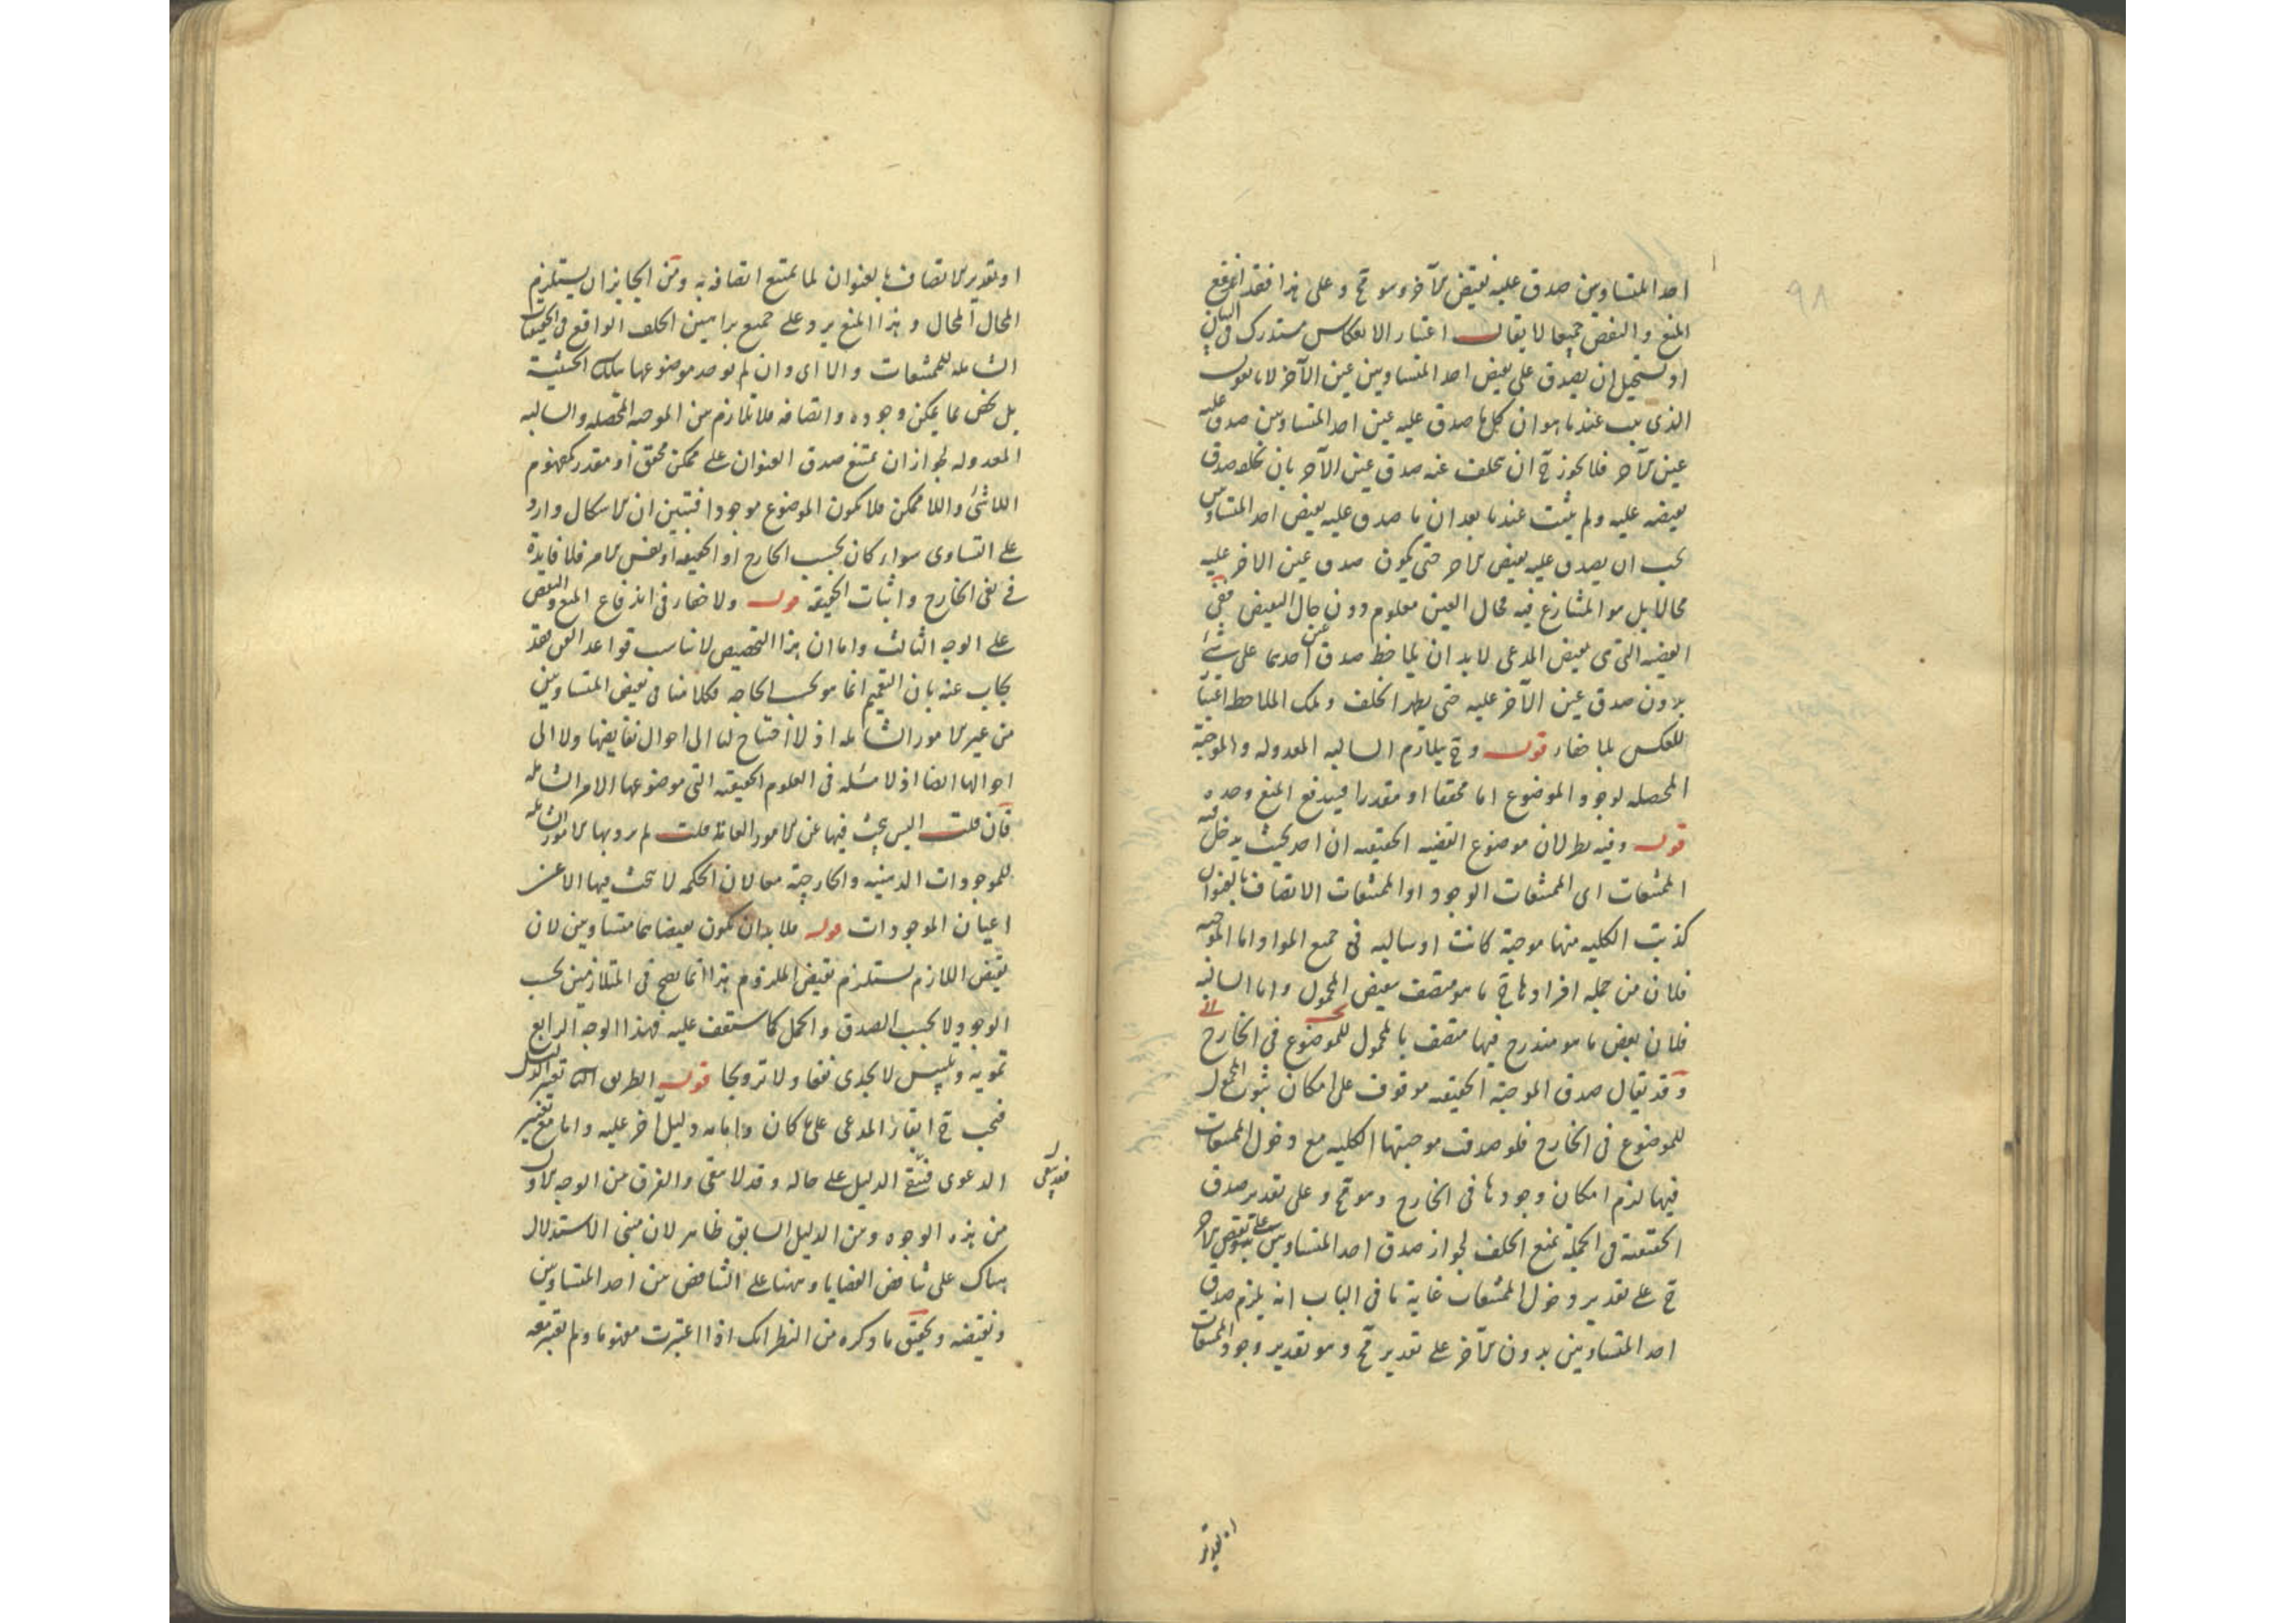 ٩٨
احد المتساويين صدق عليه نقيض الآخر وهو مح وعلى هذا فقد اندفع
المنع والنقض جميعا لا يقال اعتبار الانعكاس مستدرك في البيان
او نستحيل ان يصدق على نقيض احد المتساويين عين الآخر لانا نقول
الذي ثبت عندنا هو ان كل ما صدق عليه عين احد المتساويين صدق عليه
عين الآخر فلا يجوز ح ان يتخلف عنه صدق عين الآخر بان يخلفه صدق
نقيضه عليه ولم يثبت عندنا بعد ان ما صدق عليه نقيض احد المتساويين
يجب ان يصدق عليه نقيض الاخر حتى يكون صدق عين الاخر عليه
محالا بل هو المتنازع فيه فحال العين معلوم دون حال النقيض ففي
القضيه التي هي نقيض المدعى لا بد ان يلاحظ صدق عين احدهما على شئ
بدون صدق عين الآخر عليه حتى يظهر الخلف وتلك الملاحظه اعتبار
للعكس بلا خفاء قوله وح يتلازم السالبه المعدوله والموجبة
المحصله لوجود الموضوع اما محققا او مقدرا فيندفع المنع وحده
قوله وفيه نظر لان موضوع القضيه الحقيقيه ان اخذ بحيث يدخل فيه
الممتنعات اى الممتنعات الوجود او الممتنعات الاتصاف بالعنوان
كذبت الكليه منها موجبة كانت او سالبه في جميع المواد اما الموجبه
فلان من جمله افرادها ح ما هو متصف بنقيض المحمول واما السالبه
فلان بعض ما هو مندرج فيها متصف بالمحمول للموضوع في الخارج
وقد يقال صدق الموجبة الحقيقيه موقوف على امكان ثبوت المحمول
للموضوع في الخارج فلو صدقت موجبتها الكليه مع دخول الممتنعات
فيها لزم امكان وجودها في الخارج وهو مح وعلى تقدير صدق
الحقيقية في الجملة نمنع الخلف لجواز صدق احد المتساويين على نقيض الاخر
ح على تقدير دخول الممتنعات غاية ما في الباب انه يلزم صدق
احد المتساويين بدون الآخر على تقدير مح وهو تقدير وجود الممتنعات
او تقدير
او تقدير الاتصاف بالعنوان لما يمتنع اتصافه به ومن الجايز ان يستلزم
المحال المحال وهذا المنع يرد على جميع براهين الخلف الواقع في الحقيقيات
الشامله للممتنعات والا اى وان لم يوخذ موضوعها بتلك الحيثية
بل يخص بما يمكن وجوده واتصافه فلا تلازم بين الموجبه المحصله والسالبه
المعدوله لجواز ان يمتنع صدق العنوان على ممكن محقق او مقدر كمفهوم
اللاشئ واللاممكن فلا يكون الموضوع موجودا فتبين ان الاشكال وارد
على التساوى سواء كان بحسب الخارج او الحقيقه او نفس الامر فلا فايدة
في نفى الخارج واثبات الحقيقه قوله ولا خفاء في اندفاع المنع والنقض
على الوجه الثالث واما ان هذا التخصيص لا يناسب قواعد الفن فقد
يجاب عنه بان التعميم انما هو بحسب الحاجه فكلامنا في نقيض المتساويين
من غير الامور الشامله اذ لا احتياج لنا الى احوال نقايضها ولا الى
احوالها ايضا اذ لا مسئله في العلوم الحقيقيه التي موضوعها الامر الشامله
فان قلت اليس يبحث فيها عن الامور العامة قلت لم يرد بها الامور الشامله
للموجودات الذهنيه والخارجية معا لان الحكمه لا يبحث فيها الا عن
اعيان الموجودات قوله فلا بد ان يكون نقيضاهما متساويين لان
نقيض اللازم يستلزم نقيض الملزوم هذا انما يصح في المتلازمين بحسب
الوجود لا بحسب الصدق والحمل كما ستقف عليه فهذا الوجه الرابع
تمويه وتلبيس لا يجدى نفعا ولا ترويجا قوله الطريق الثانى تغيير الدليل
فيجب ح ابقاء المدعى على ما كان واقامه دليل آخر عليه واما مع تغيير
الدعوى فيبقى الدليل على حاله وقد لا يبقى والفرق بين الوجه الاول
من هذه الوجوه وبين الدليل السابق ظاهر لان مبنى الاستدلال
هناك على تناقض القضايا وههنا على التناقض بين احد المتساويين
ونقيضه وتحقيق ما ذكره من النظر انك اذا اعتبرت مفهوما ولم تعتبر معه